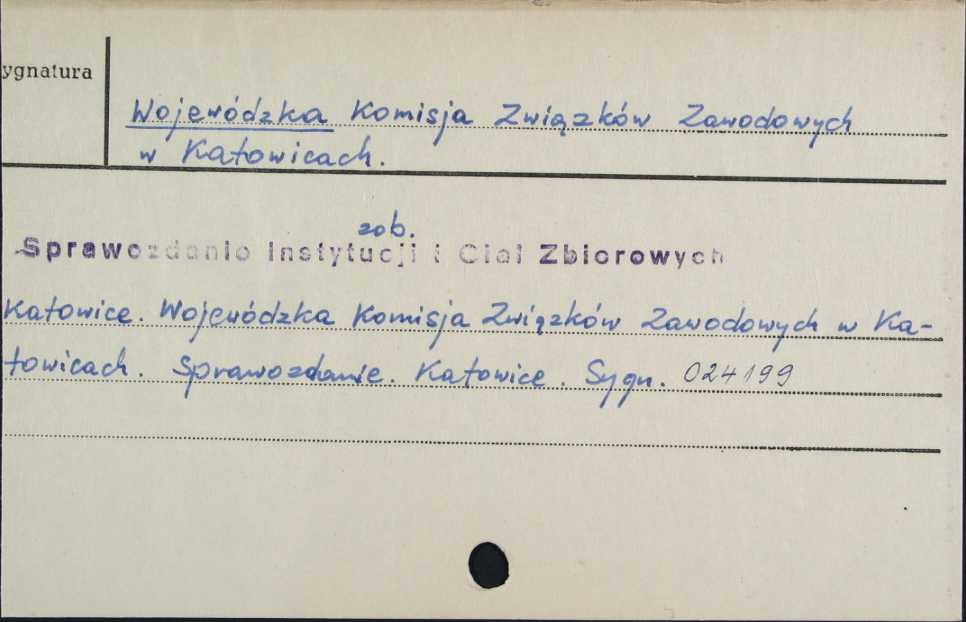 ygnatura
Wojewódzka Komisja Związków Zawodowych
w Katowicach.
zob.
Sprawozdanie Instytucji i Ciał Zbiorowych
Katowice. Wojewódzka Komisja Związków Zawodowych w Ka-
towicach. Sprawozdanie. Katowice. Sygn. 024199